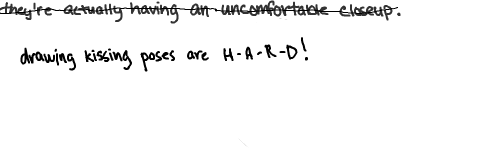 they're actually having an uncomfortable closeup.
drawing kissing poses are H-A-R-D!